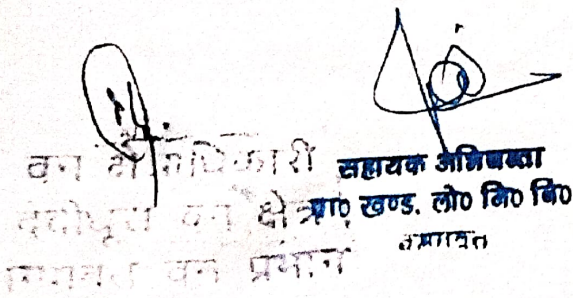 वन क्षेत्राधिकारी
वन क्षेत्र
वन प्रभाग
सहायक अभियन्ता
प्रा० खण्ड. लो० नि० वि०
चम्पावत